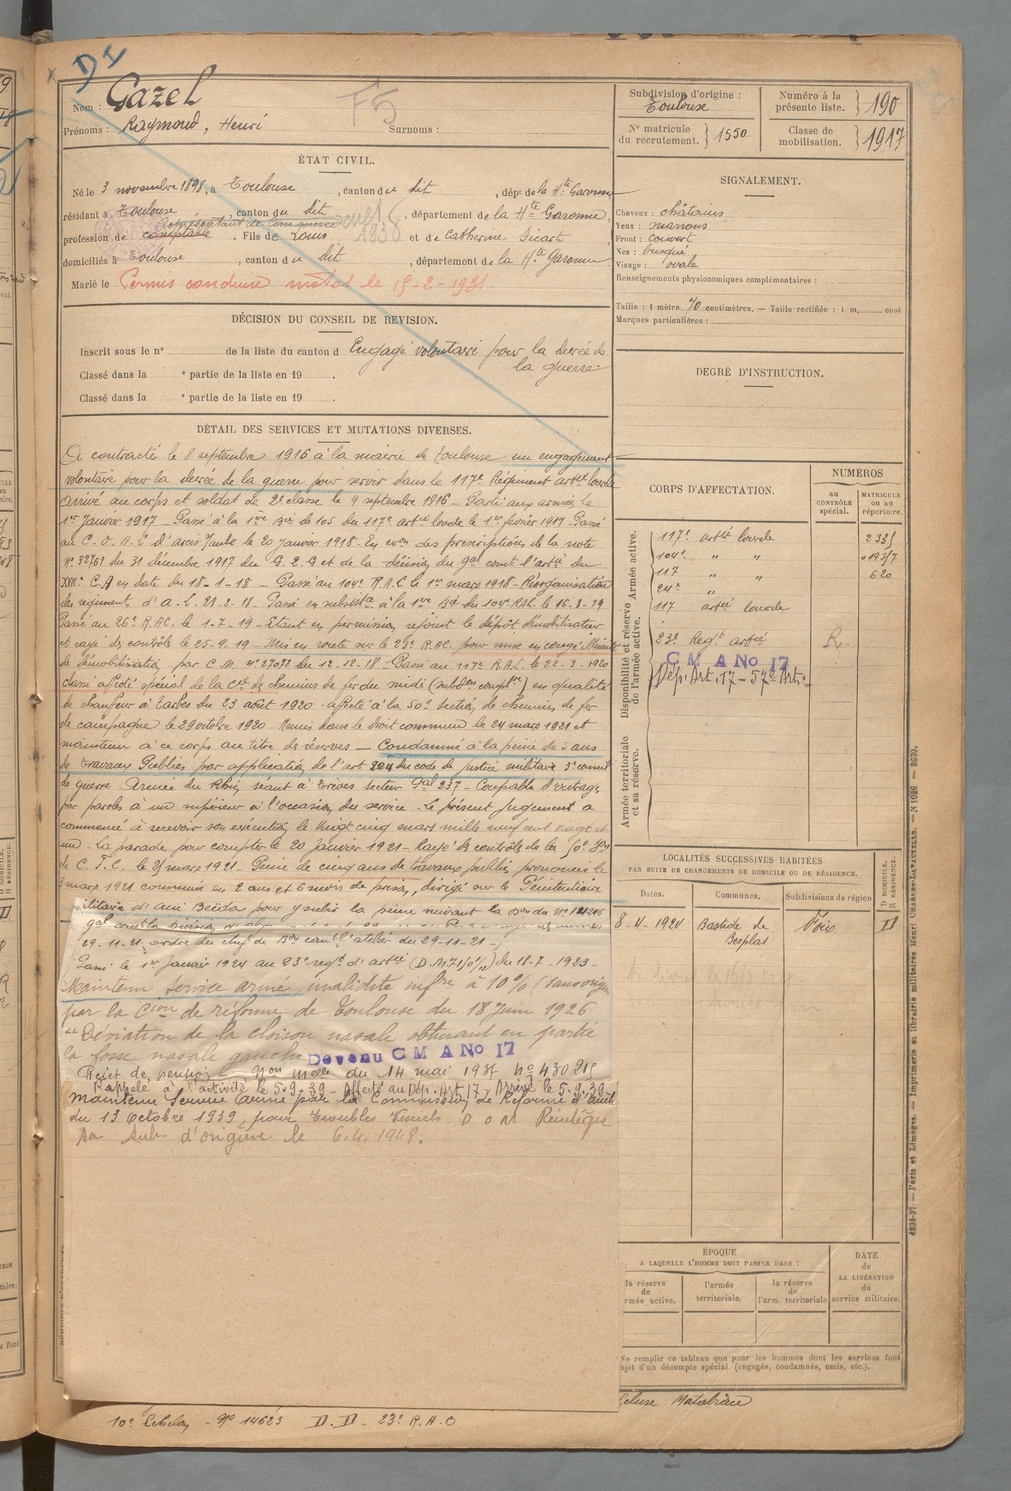 D I
Nom : Gazel
Prénoms : Raymond, Henri Surnoms :
F5
Subdivision d'origine :
Toulouse
Numéro à la présente liste. 190
N° matricule du recrutement. 1550
Classe de mobilisation. 1917
ÉTAT CIVIL.
Né le 3 novembre 1898, à Toulouse, canton du dit, dépt de la Hte Garonne
résidant à Toulouse, canton du dit, département de la Hte Garonne,
Représentant de Commerce
profession de comptable. Fils de Louis et de Catherine Sicart,
domiciliés à Toulouse, canton du dit, département de la Hte Garonne
Marié le Permis conduire le 15-2-1931
DÉCISION DU CONSEIL DE REVISION.
Inscrit sous le n° de la liste du canton d Engagé volontaire pour la durée de
la guerre.
Classé dans la e partie de la liste en 19 .
Classé dans la e partie de la liste en 19 .
DÉTAIL DES SERVICES ET MUTATIONS DIVERSES.
A contracté le 8 septembre 1916 à la mairie de Toulouse un engagement
volontaire pour la durée de la guerre pour servir dans le 117e Régiment artie lourde
Arrivé au corps et soldat de 2e classe le 9 septembre 1916 - Parti aux armées le
1er Janvier 1917 - Passé à la 1ère Bie de 105 du 117e artie lourde le 1er février 1917 - Passé
au C.O.A.L d'Arcis s/aube le 20 Janvier 1918 - En exon des prescriptions de la note
N° 32761 du 31 décembre 1917 du G.Q.G et de la décision du Gal comt l'artie du
C.A en date du 18-1-18 - Passé au 104e R.A.L le 1er mars 1918 - Réorganisation
des régiments d'A.L. - Passé en subsistce à la 1ère Bie du 104e RAL le 16-3-19
Passé au 26e R.A.C. le 1-7-19 - Etant en permission rejoint le dépôt démobilisateur
et rayé des contrôles le 25-9-19 - Mis en route sur le 23e R.A.C. pour mise en congé illimité
de démobilisation par C.M. N° 27072 du 12-12-18 - Passé au 117e R.A.L. le 22-3-1920
Classé affecté spécial de la Cie de chemins de fer du midi (subdon complre) en qualité
de chauffeur à Tarbes du 23 août 1920 - affecté à la 50e section de chemins de fer
de campagne le 29 octobre 1920 - Remis dans le droit commun le 24 mars 1921 et
maintenu à ce corps au titre des réserves - Condamné à la peine de 5 ans
de travaux Publics par application de l'art 224 du code de justice militaire 3e conseil
de guerre Armée du Rhin séant à Trèves secteur Pal 237 - Coupable d'outrages
par paroles à un supérieur à l'occasion du service - le présent Jugement a
commencé à recevoir son exécution le vingt cinq mars mille neuf cent vingt et
un. La parade pour compter le 20 janvier 1921 - Rayé des contrôles de la 50e Son
de C.F.C. le mars 1921 - Peine de cinq ans de travaux publics prononcés le
mars 1921 commuée en 2 ans et 6 mois de prison, dirigé sur le Pénitentiaire
militaire d'Ain Beida pour y subir la peine suivant la
29-11-21, ordre du chef de Bon comt l'atelier du 29-11-21 -
Passé le 1er Janvier 1924 au 23e régt d'artie (D.M) du 18-7-1923 -
Maintenu service armé, invalidité infre à 10% (sans origine)
par la Cion de réforme de Toulouse du 18 juin 1926
"Déviation de la cloison nasale obturant en partie
la fosse nasale gauche Devenu C M A No 17
Rejet de pension Mon Melle du 14 mai 1937 no 430215
Rappelé à l'activité le 5-9-39 - Affecté au Dép. Art 17 - Arrivé le 5-9-39
Maintenu service armé par la Commission de Réforme d'Auch
du 13 Octobre 1939, pour Troubles D O M Réintègre
sa Sub. d'origine le 6.4.1948.
10e Echelon - No 14623 D.D - 23e R.A.C
SIGNALEMENT.
Cheveux : châtains
Yeux : marrons
Front : couvert
Nez : busqué
Visage : ovale
Renseignements physionomiques complémentaires :
Taille : 1 mètre 70 centimètres. — Taille rectifiée : 1 m. cent
Marques particulières :
DEGRÉ D'INSTRUCTION.
CORPS D'AFFECTATION.
NUMÉROS
AU CONTRÔLE spécial.
MATRICULE ou au répertoire.
Armée active.
117e artie lourde 2335
104e " "
117 " " 620
24e "
117 artie lourde
Disponibilité et réserve de l'armée active.
23e Regt artie R.
C M A No 17
Dep. Art. 17 - 57e Art.
Armée territoriale et sa réserve.
LOCALITÉS SUCCESSIVES HABITÉES
PAR SUITE DE CHANGEMENTS DE DOMICILE OU DE RÉSIDENCE.
Dates. Communes. Subdivisions de région D. DOMICILE. R. RÉSIDENCE.
8-4-1920 Bastide de Besplas Foix D
ÉPOQUE
A LAQUELLE L'HOMME DOIT PASSER DANS :
la réserve de l'armée active.
l'armée territoriale.
la réserve de l'arm. territoriale
DATE
de
LA LIBÉRATION
du
service militaire.
Ne remplir ce tableau que pour les hommes dont les services font
objet d'un décompte spécial (engagés, condamnés, omis, etc.).
Matabiau
4234-27. — Paris et Limoges. — Imprimerie et librairie militaires Henri CHARLES-LAVAUZELLE. — N 1026 — 2639.